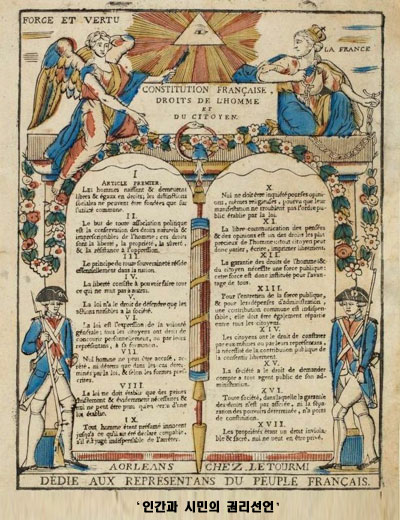 FORCE ET VERTU
LA FRANCE
CONSTITUTION FRANÇAISE.
DROITS DE L'HOMME
ET
DU CITOYEN.
I
ARTICLE PREMIER.
Les hommes naissent & demeurent
libres & égaux en droits; les distinctions
sociales ne peuvent être fondées que sur
l'utilité commune.
II.
Le but de toute association politique
est la conservation des droits naturels &
imprescriptibles de l'homme; ces droits
sont la liberté, la propriété, la sûreté,
& la résistance à l'oppression.
III.
Le principe de toute souveraineté réside
essentiellement dans la nation.
IV.
La liberté consiste à pouvoir faire tout
ce qui ne nuit pas à autrui.
V.
La loi n'a le droit de défendre que les
actions nuisibles à la société.
VI.
La loi est l'expression de la volonté
générale; tous les citoyens ont droit de
concourir personnellement, ou par leurs
représentans, à sa formation.
VII.
Nul homme ne peut être accusé,
ni détenu que dans les cas déter-
minés par la loi, & selon les formes pres-
crites.
VIII.
La loi ne doit établir que des peines
strictement & évidemment nécessaires &
nul ne peut être puni qu'en vertu d'une
loi établie.
IX.
Tout homme étant présumé innocent
jusqu'à ce qu'il ait été déclaré coupable,
s'il est jugé indispensable de l'arrêter.
X.
Nul ne doit être inquiété pour ses opini-
ons, mêmes religieuses, pourvu que leur
manifestation ne trouble pas l'ordre publi-
c établi par la loi.
XI.
La libre communication des pensées
& des opinions est un des droits les plus
précieux de l'homme: tout citoyen peut
parler, écrire, imprimer librement.
XII.
La garantie des droits de l'homme & du
citoyen nécessite une force publique:
cette force est donc instituée pour l'avan-
tage de tous.
XIII.
Pour l'entretien de la force publique,
& pour les dépenses d'administration,
une contribution commune est indispen-
sable; elle doit être également répartie
entre tous les citoyens.
XIV.
Les citoyens ont le droit de constater
par eux mêmes ou par leurs représentans,
la nécessité de la contribution publique de
la consentir librement.
XV.
La société a le droit de demander
compte à tout agent public de son ad-
ministration.
XVI.
Toute société, dans laquelle la garantie
des droits n'est pas assurée, ni la sépa-
ration des pouvoirs déterminée, n'a point
de constitution.
XVII.
Les propriétés étant un droit inviola-
ble & sacré, nul ne peut en être privé.
A ORLEANS CHEZ LETOURMI
DÉDIÉ AUX REPRESENTANS DU PEUPLE FRANÇAIS.
'인간과 시민의 권리선언'